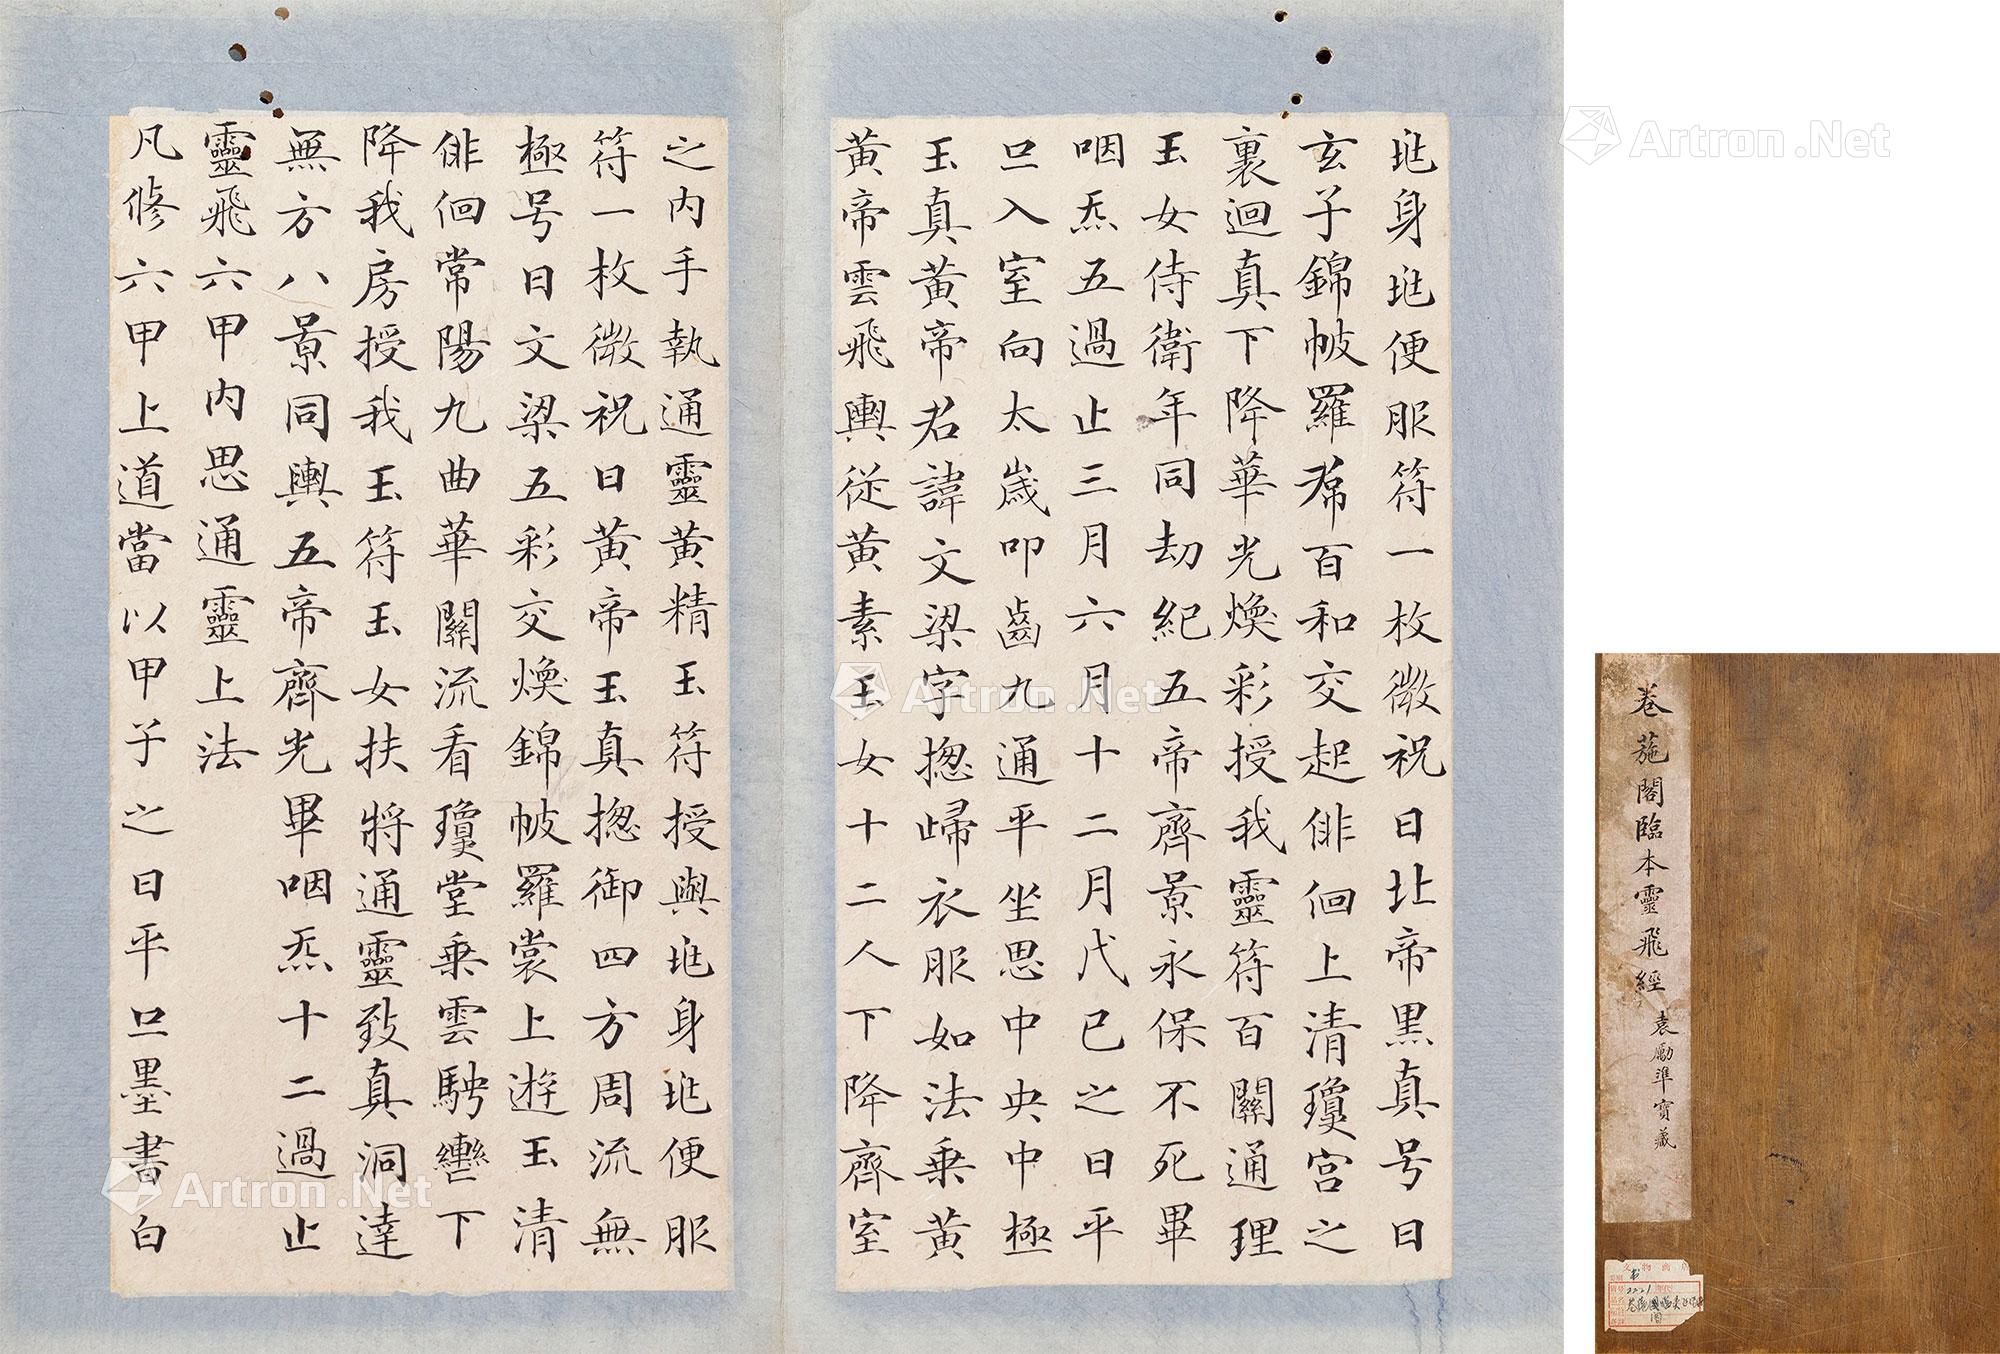 玭身玭便服符一枚微祝曰北帝黑真号曰
玄子錦帔羅帬百和交起俳佪上清瓊宮之
裏迴真下降華光煥彩授我靈符百關通理
玉女侍衛年同劫紀五帝齊景永保不死畢
咽炁五過止三月六月十二月戊己之日平
旦入室向太歲叩齒九通平坐思中央中極
玉真黃帝君諱文梁字揔歸衣服如法乗黃
黃帝雲飛輿從黃素玉女十二人下降齊室
之內手執通靈黃精玉符授與玭身玭便服
符一枚微祝曰黃帝玉真揔御四方周流無
極号曰文梁五彩交煥錦帔羅裳上遊玉清
俳佪常陽九曲華關流看瓊堂乗雲騁轡下
降我房授我玉符玉女扶將通靈致真洞達
無方八景同輿五帝齊光畢咽炁十二過止
靈飛六甲內思通靈上法
凡修六甲上道當以甲子之日平旦墨書白
卷葹閣臨本靈飛經
袁勵準寶藏
Artron.Net
Artron.Net
Artron.Net